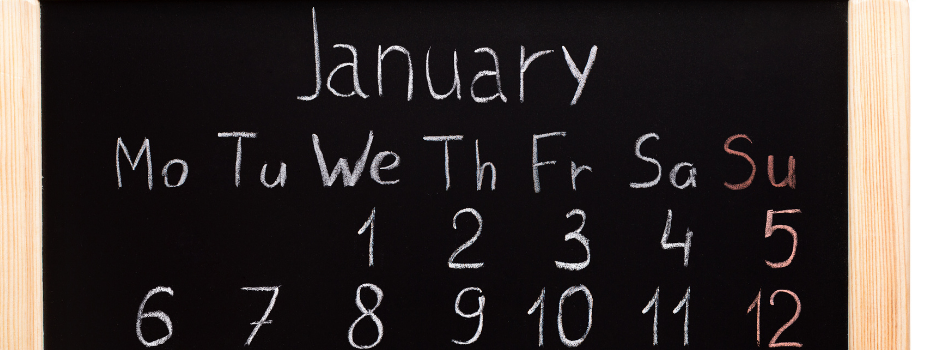 January
Mo Tu We Th Fr Sa Su
1 2 3 4 5
6 7 8 9 10 11 12